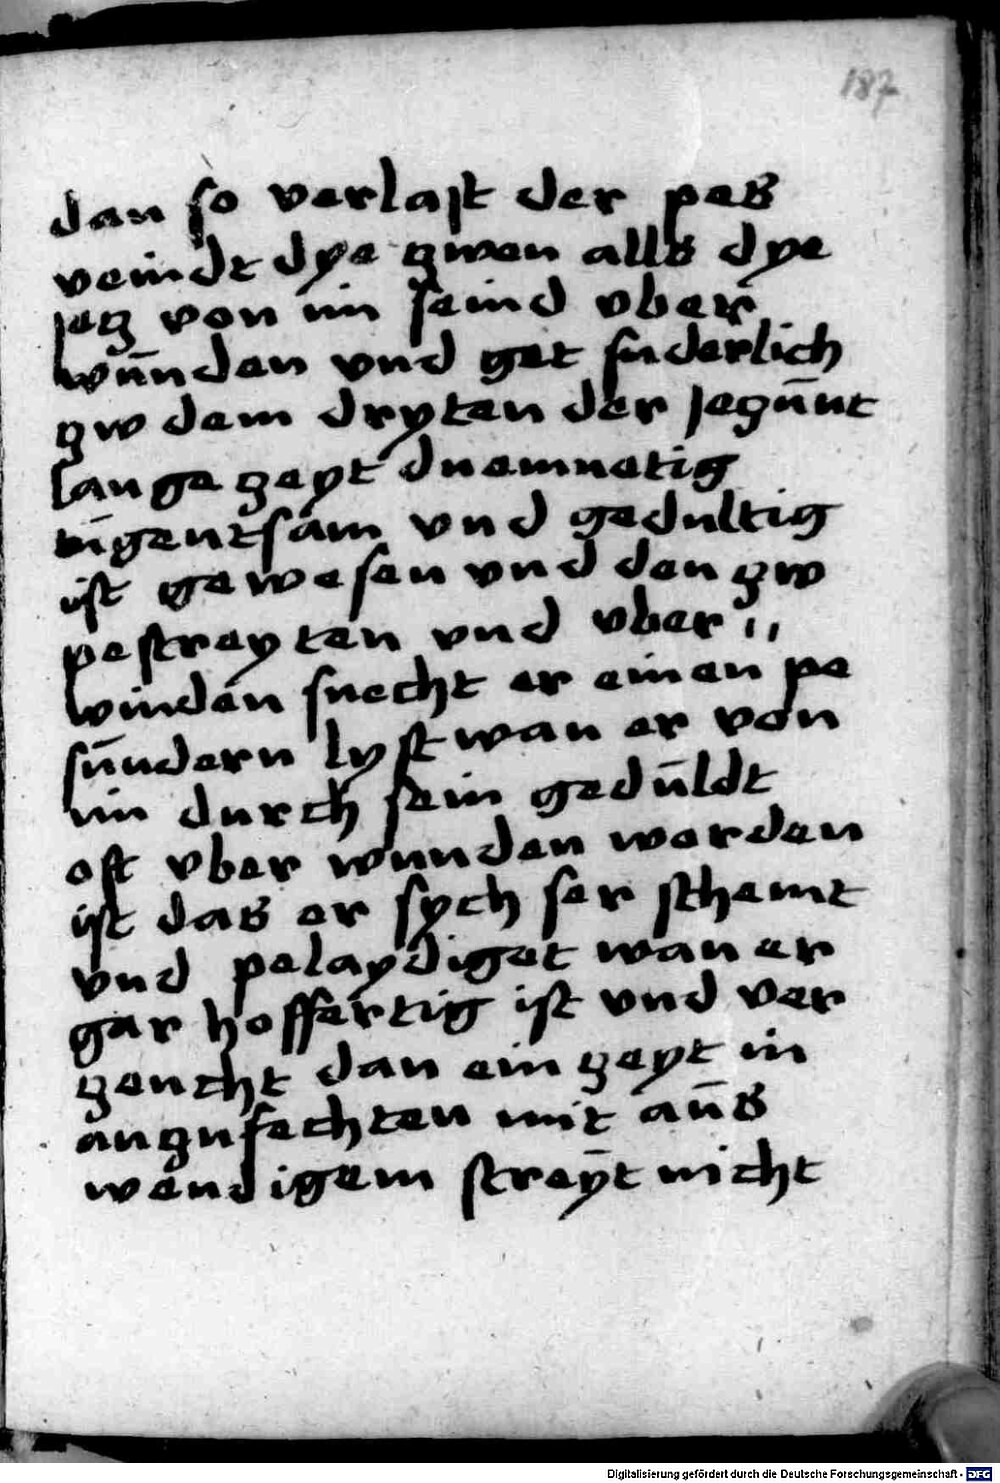 187
dan so verlast der pes
veindt dye zwen alls dye
jez von im seind vber
wūnden vnd get suderlich
zw dem dryten der jezūnt
lange zeyt duemuetig
tugentsam vnd gedultig
ist gewesen vnd den zw
pestreyten vnd vber〃
winden suecht er einen pe
sūndern lyst wan er von
im durch sein gedūldt
oft vber wunden worden
ist das er sych ser schemt
vnd pelaydiget wan er
gar hoffertig ist vnd ver
zeucht dan ein zeyt in
anzufechten mit aūs
wendigem streyt nicht
Digitalisierung gefördert durch die Deutsche Forschungsgemeinschaft - DFG